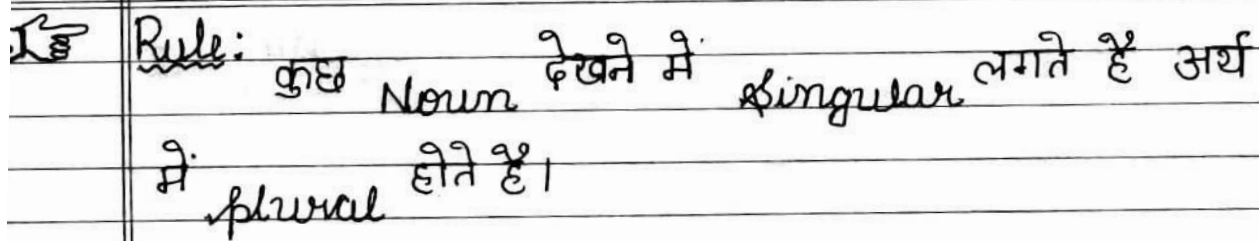 Rule: कुछ Noun देखने में Singular लगते है अर्थ
में plural होते है।